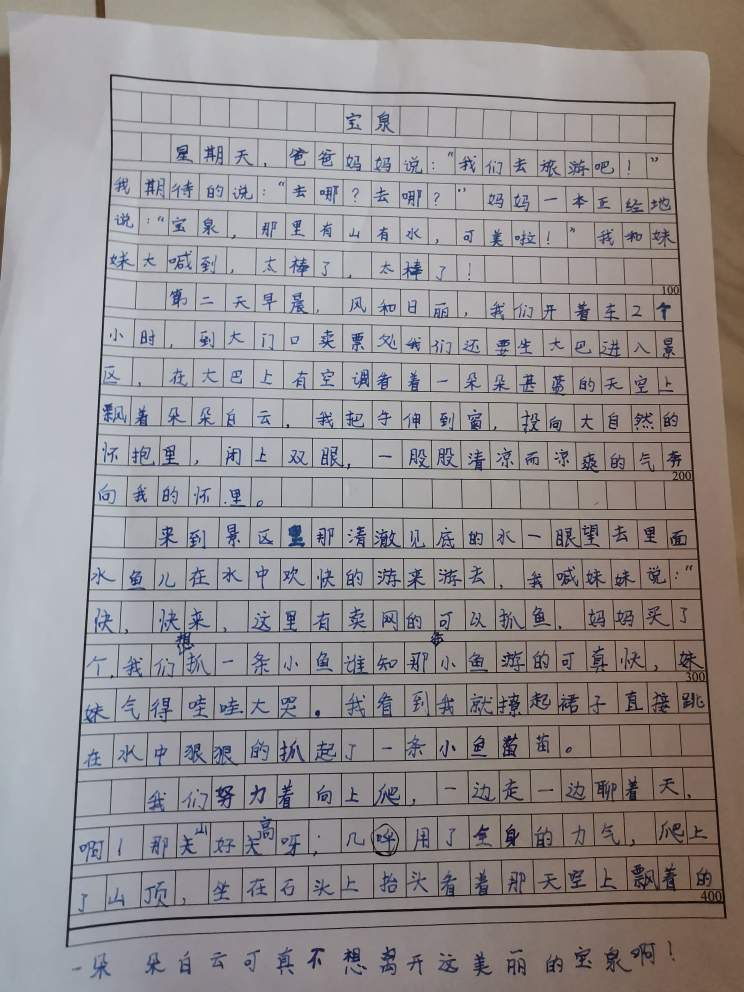 宝泉
星期天，爸爸妈妈说：“我们去旅游吧！”
我期待的说：“去哪？去哪？”妈妈一本正经地
说：“宝泉，那里有山有水，可美啦！”我和妹
妹大喊到，太棒了，太棒了！
100
第二天早晨，风和日丽，我们开着车2个
小时，到大门口卖票处我们还要坐大巴进入景
区，在大巴上有空调看着一朵朵甚蓝的天空上
飘着朵朵白云，我把手伸到窗，投向大自然的
怀抱里，闭上双眼，一股股清凉而凉爽的气奔
200
向我的怀里。
来到景区里那清澈见底的水一眼望去里面
水鱼儿在水中欢快的游来游去，我喊妹妹说：“
快，快来，这里有卖网的可以抓鱼，妈妈买了
个，我们想抓一条小鱼谁知那条小鱼游的可真快，妹
300
妹气得哇哇大哭。我看到我就撩起裙子直接跳
在水中狠狠的抓起了一条小鱼苗苗。
我们努力着向上爬，一边走一边聊着天，
啊！那山好高呀；几呼用了全身的力气，爬上
了山顶，坐在石头上抬头看着那天空上飘着的
400
一朵朵白云可真不想离开这美丽的宝泉啊！